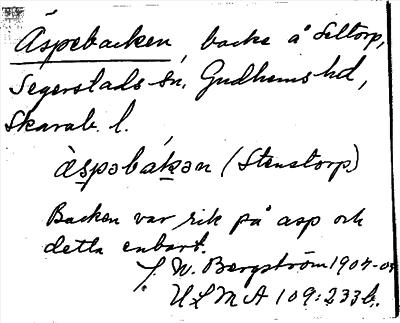 Äspebacken, backe å Siltorp,
Segerstads sn. Gudhems hd,
Skarab. l.
äspəbákən (Stenstorp.)
Backen var rik på asp och
detta enbart.
W. Bergström 1907-08
ULMA 109:233b.